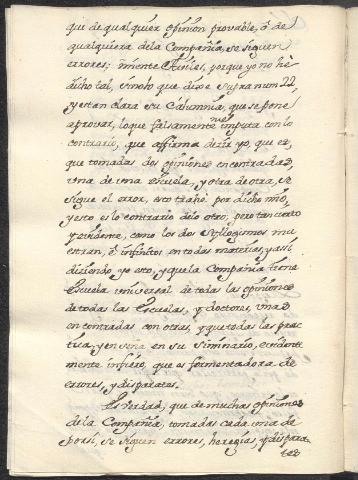 que de qualquier opinion provable, ó de
qualquiera dela Compañia, se siguen
errores; miente Aviles, porque yo no hè
dicho tal, sinolo que dixe supra num 22,
y es tan clara su Calumnia, que se pone
a provar, lo que falsamente me imputa con lo
contrario, que affirma dezir yo, que es,
que tomadas dos opiniones encontradas,
una de una escuela, y otra de otra, se
sigue el error, esto trahe por dicho mio,
y esto es lo contrario delo otro; pero tan cierto
y evidente, como los dos Syllogismos mu
estran, ò infinitos en todas materias, y assi
diziendo yo esto, y que la Compañia tiene
escuela universal de todas las opiniones
de todas las escuelas, y doctores, unas
encontradas con otras, y que todas las prac
tica, y enseña en su Seminario, evidente
mente infiero, que es formentadora de
errores, y disparates.
Es verdad, que de muchas opiniones
dela Compañia, tomadas cada una de
porsi, se siguen errores, heregias, y dispara-
tes